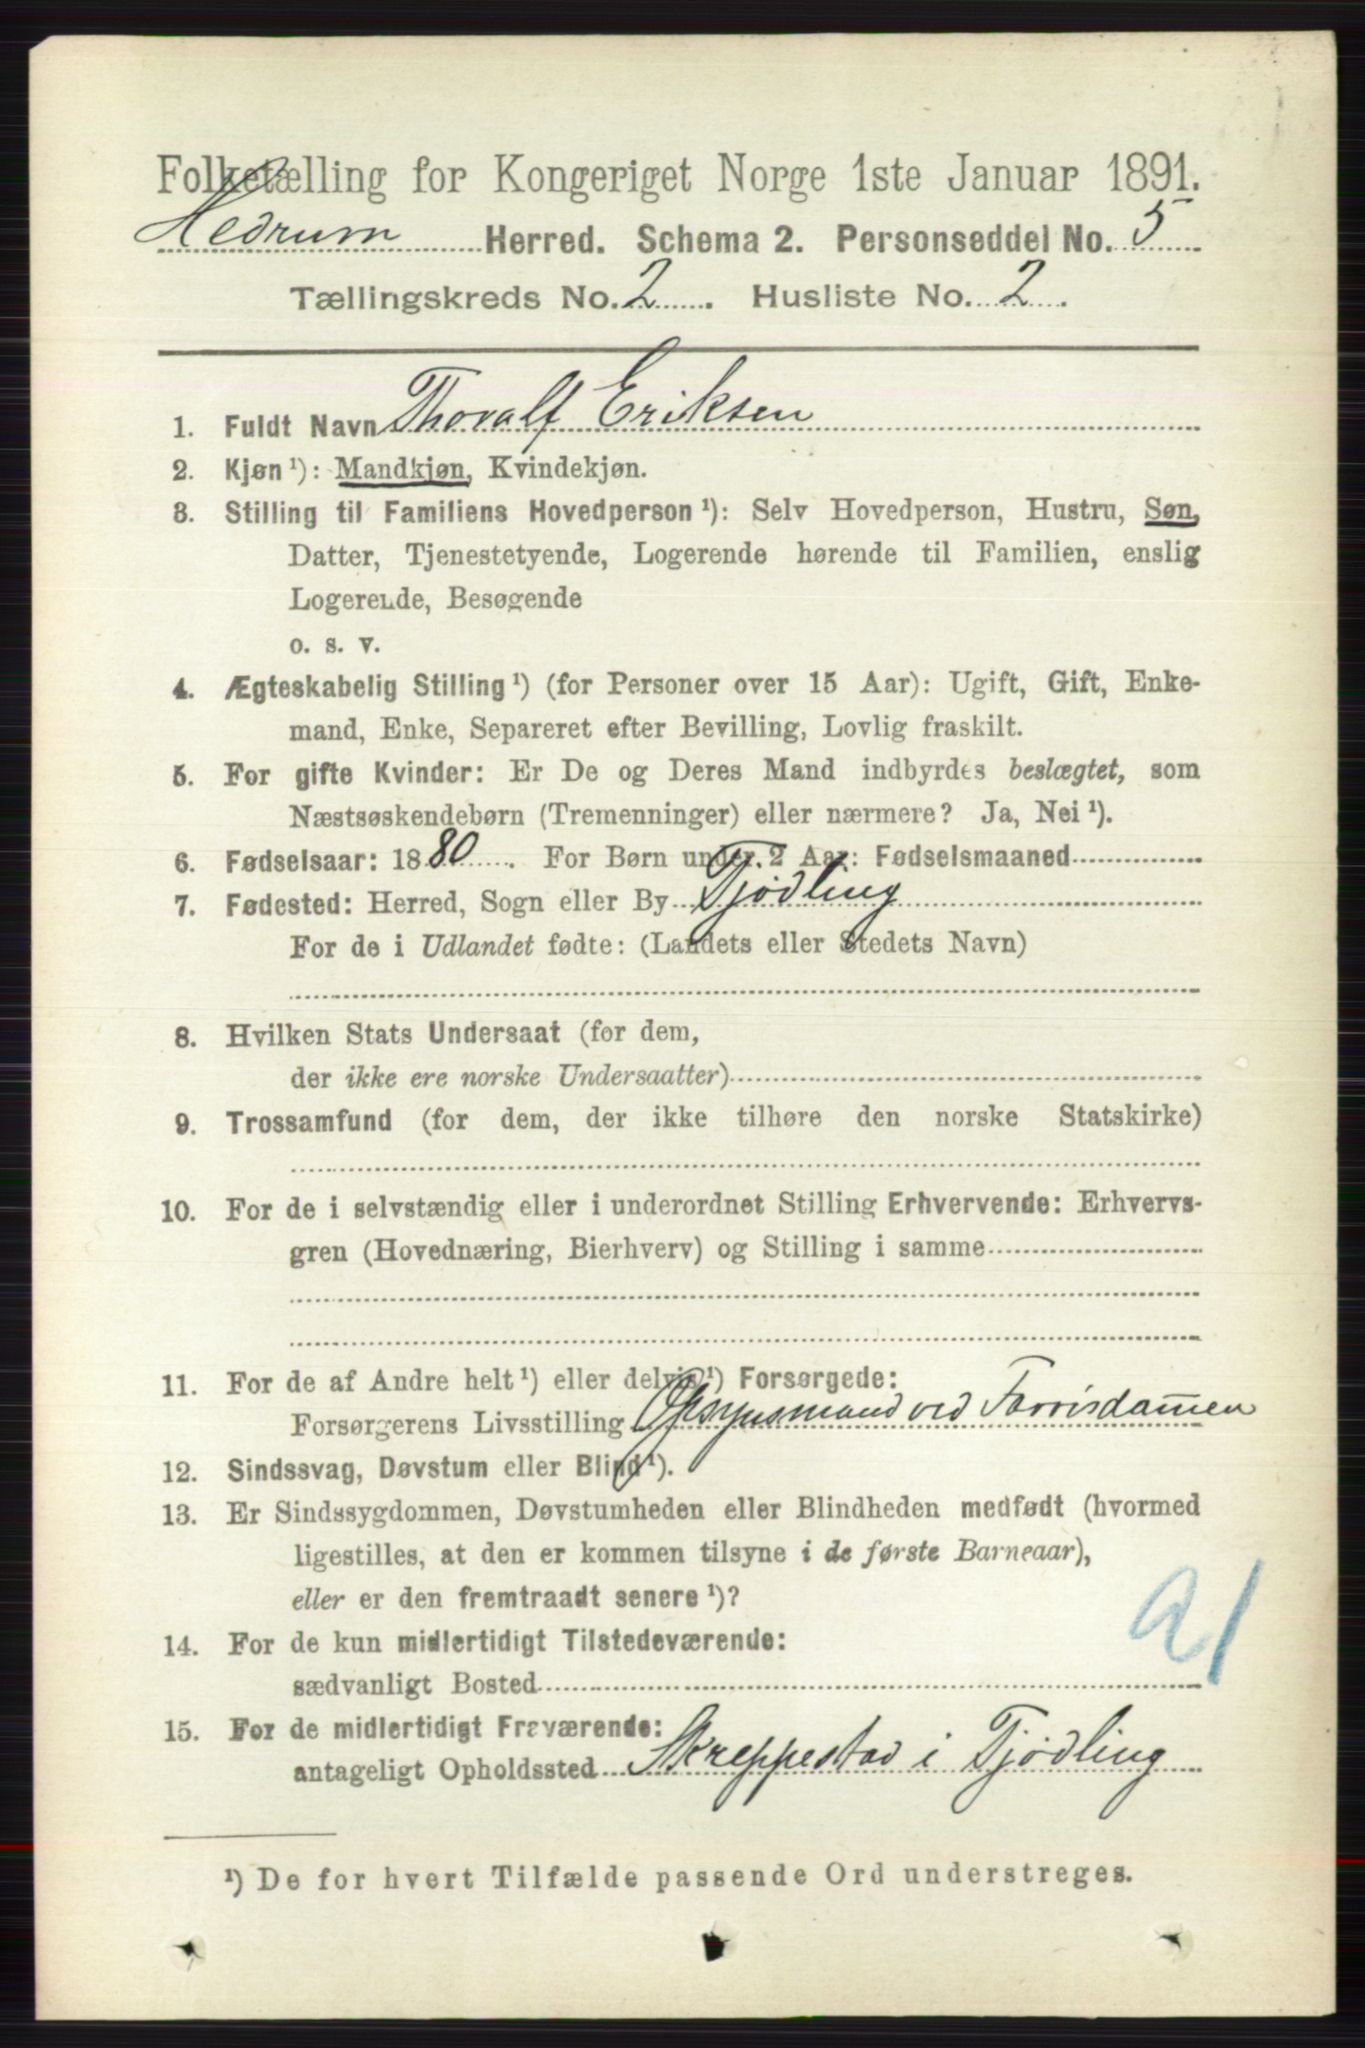 Folketælling for Kongeriget Norge 1ste Januar 1891.
Hedrum Herred. Schema 2. Personseddel No. 5
Tællingskreds No. 2. Husliste No. 2.
1. Fuldt Navn Thoralf Eriksen
2. Kjøn ¹): Mandkjøn, Kvindekjøn.
3. Stilling til Familiens Hovedperson ¹): Selv Hovedperson, Hustru, Søn,
Datter, Tjenestetyende, Logerende hørende til Familien, enslig
Logerende, Besøgende
o. s. v.
4. Ægteskabelig Stilling ¹) (for Personer over 15 Aar): Ugift, Gift, Enke-
mand, Enke, Separeret efter Bevilling, Lovlig fraskilt.
5. For gifte Kvinder: Er De og Deres Mand indbyrdes beslægtet, som
Næstsøskendebørn (Tremenninger) eller nærmere? Ja, Nei ¹).
6. Fødselsaar: 1880. For Børn under 2 Aar: Fødselsmaaned
7. Fødested: Herred, Sogn eller By Tjødling
For de i Udlandet fødte: (Landets eller Stedets Navn)
8. Hvilken Stats Undersaat (for dem,
der ikke ere norske Undersaatter)
9. Trossamfund (for dem, der ikke tilhøre den norske Statskirke)
10. For de i selvstændig eller i underordnet Stilling Erhvervende: Erhvervs-
gren (Hovednæring, Bierhverv) og Stilling i samme
11. For de af Andre helt ¹) eller delvis ¹) Forsørgede:
Forsørgerens Livsstilling Opsynsmand ved Farrisdam̅en
12. Sindssvag, Døvstum eller Blind ¹).
13. Er Sindssygdommen, Døvstumheden eller Blindheden medfødt (hvormed
ligestilles, at den er kommen tilsyne i de første Barneaar),
eller er den fremtraadt senere ¹)?
14. For de kun midlertidigt Tilstedeværende:
sædvanligt Bosted
15. For de midlertidigt Fraværende:
antageligt Opholdssted Skreppestad i Tjødling
¹) De for hvert Tilfælde passende Ord understreges.